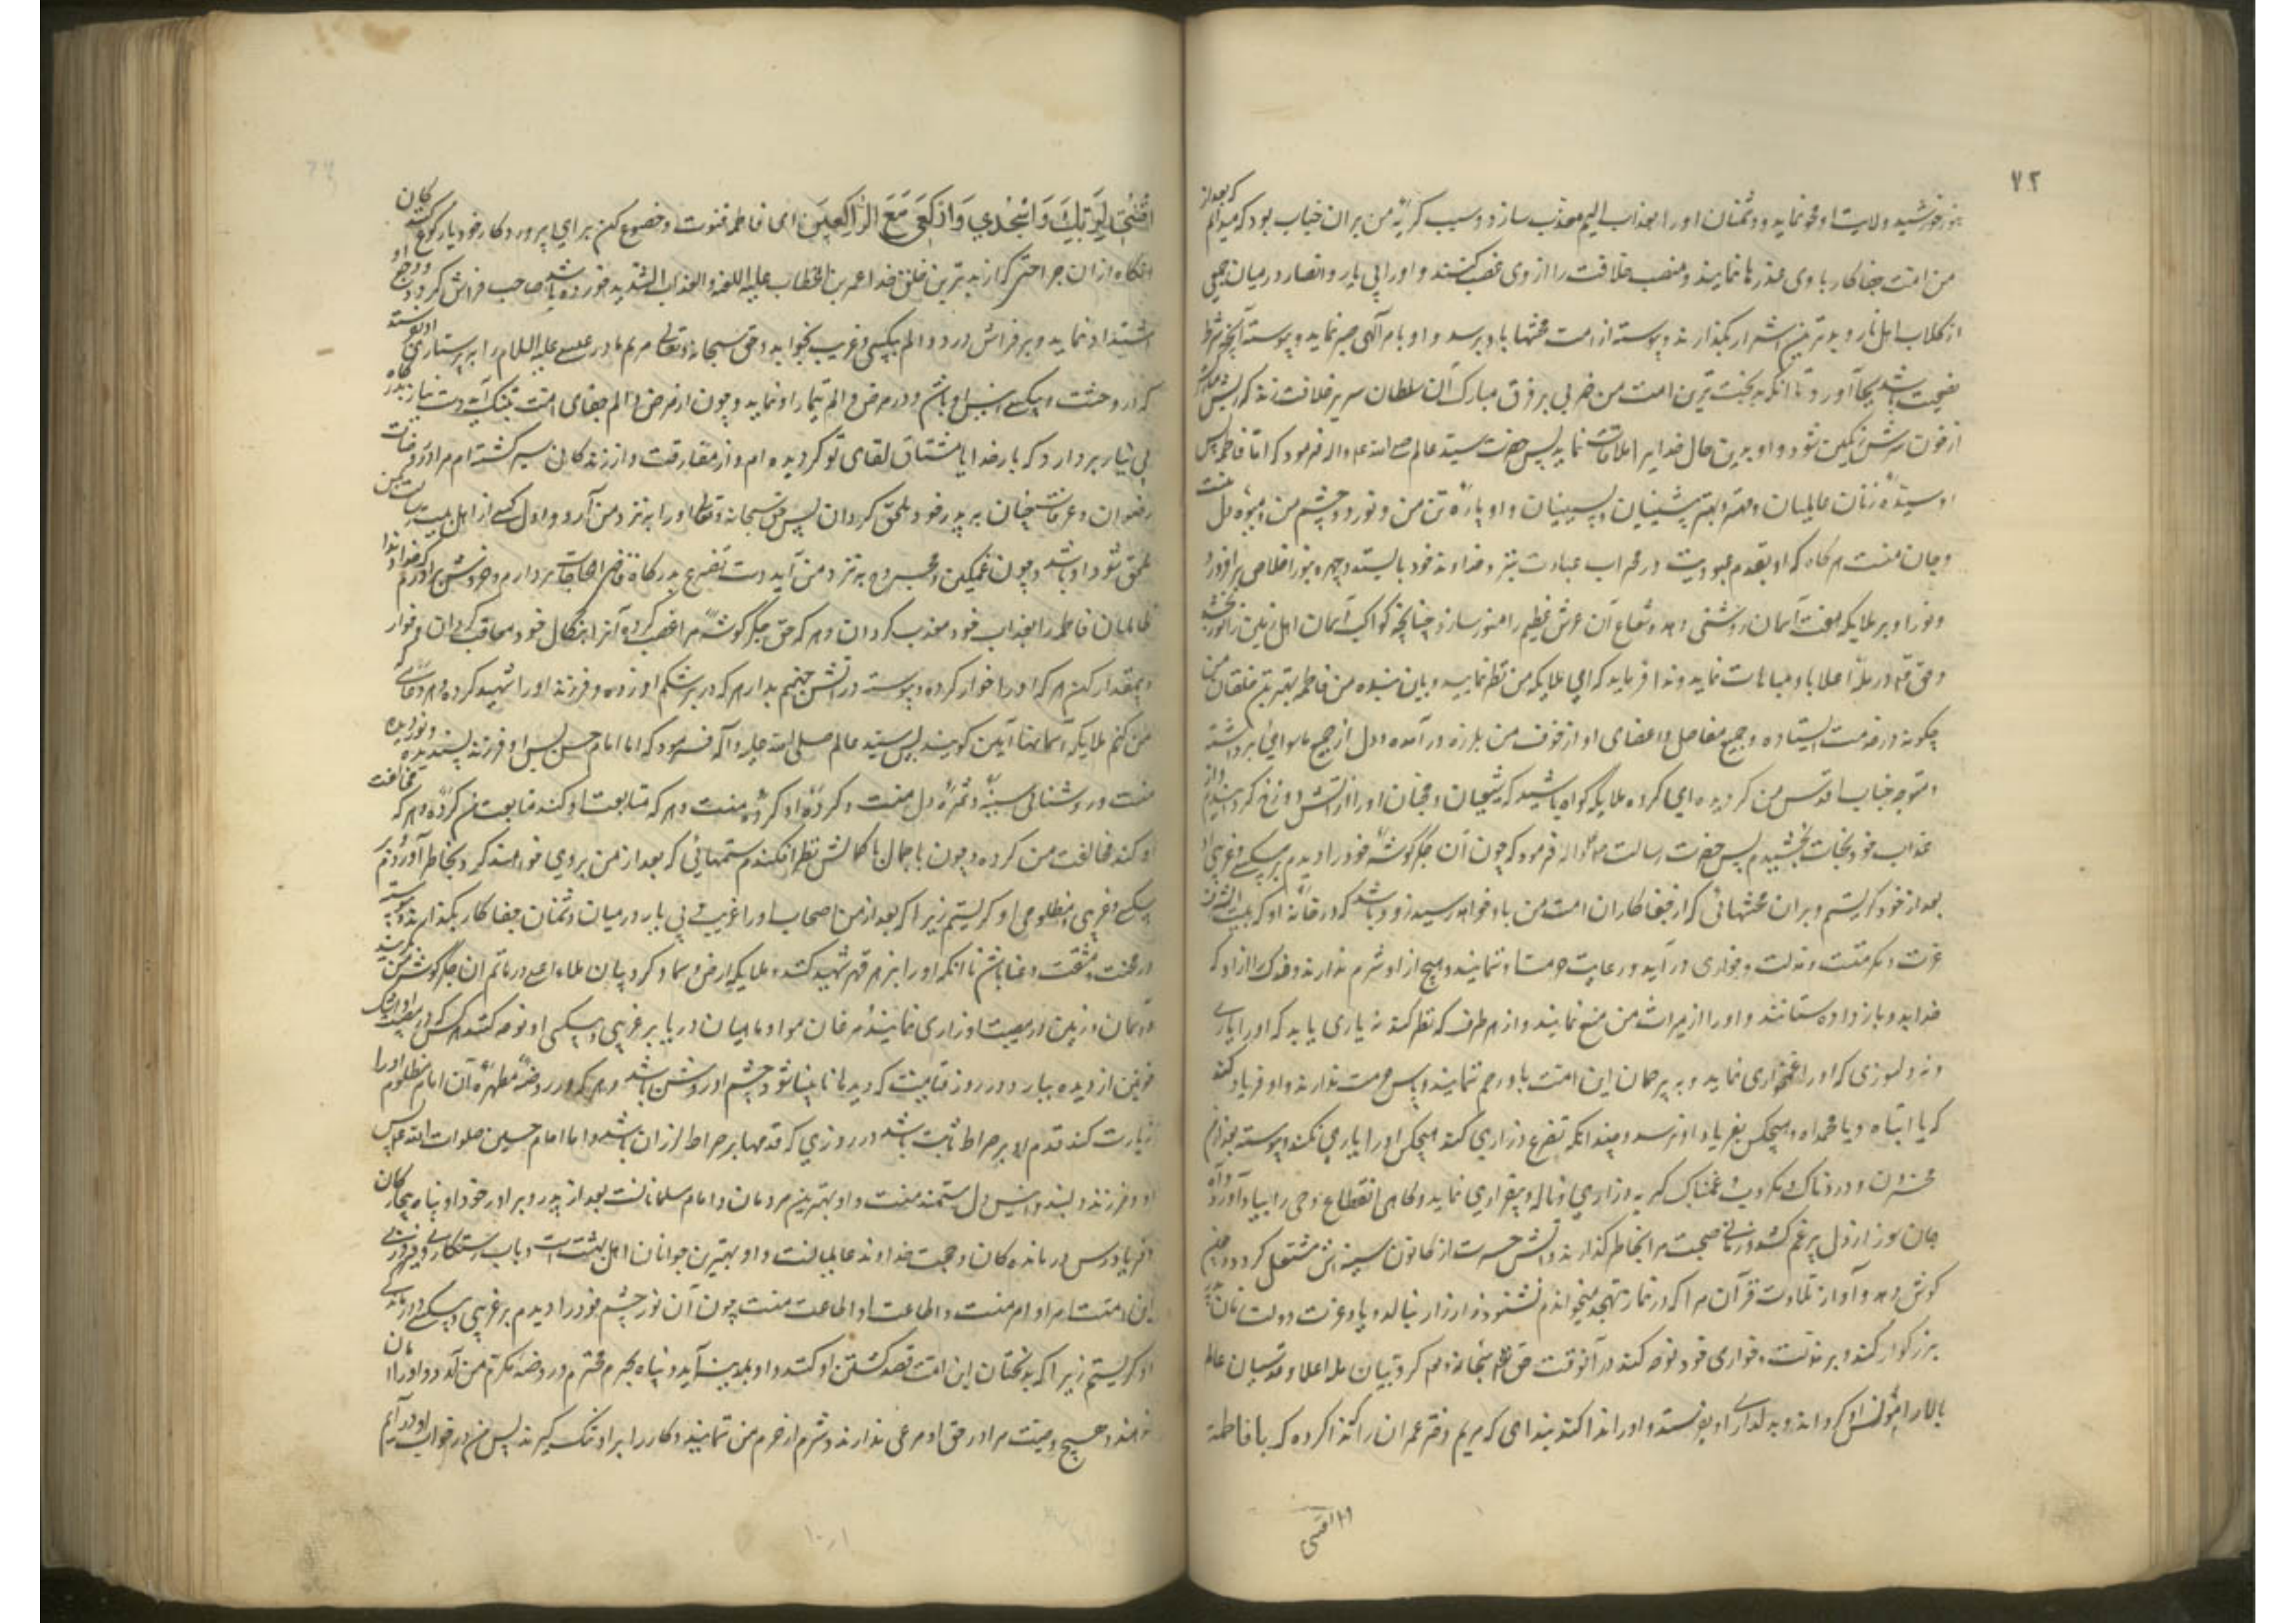 ۷۲
بنور خورشید ولایت او محو نماید و دشمنان او را بعذاب الیم معذب سازد و سبب گریهٔ من بر آن جناب بود که میدانم که بعد از
من امت جفاکار با وی غدرها نمایند و منصب خلافت را از وی غصب کنند و او را بی یار و انصار در میان جمعی
از کلاب اهل نار و بدترین اشرار بگذارند و پیوسته از امت محنتها باو برسد و او بامر الهی صبر نماید و پیوسته آنچه شرط
نصیحت باشد بجا آورد تا آنکه بدبخت ترین امت من ضربی بر فرق مبارک آن سلطان سریر خلافت زند که ریش مبارکش
از خون سرش رنگین شود و او بدین حال خدا را ملاقات نماید پس حضرت سید عالم صلی الله علیه واله فرمود که اما فاطمه پس
او سیدهٔ زنان عالمیان و مهتر و بهتر پیشینیان و پسینیان و او پارهٔ تن من و نور دو چشم من و میوهٔ دل منست
و جان منست هر گاه که او بقدم عبودیت در محراب عبادت بنزد خداوند خود بایستد و چهره بنور اخلاص برافروزد
و نور او بر ملایکه هفت آسمان روشنی دهد و شعاع آن عرش عظیم را منور سازد چنانچه کواکب آسمان اهل زمین را نور بخشد
و حق تعالی در ملأ اعلا باو مباهات نماید و ندا فرماید که ای ملایکه من نظر نمایید و ببینید بنده من فاطمه بهترین خلقان من
چگونه در خدمت ایستاده و جمیع مفاصل و اعضای او از خوف من بلرزه در آمده و دل از جمیع ماسوای برداشته
و متوجه جناب اقدس من گردیده ای گروه ملایکه گواه باشید که شیعیان و محبان او را از آتش دوزخ گردانیدم و از
عذاب خود نجات بخشیدم پس حضرت رسالت صلی الله علیه واله فرمود که چون آن جگر گوشهٔ خود را دیدم بر بیکسی و غریبی او
بعد از خود گریستم و بر آن محنتهائی که از جفاکاران امت من باو خواهد رسید و زود باشد که در خانهٔ او که بیت الشرف
عزت و مکرمتست و مذلت و خواری در آید و رعایت حرمت او ننمایند و هیچ از او شرم ندارند و فدک را از او که
خدا بدو باز داده ستانند و او را از میراث من منع نمایند و از هر طرف که نظر کند نه یاری یابد که او را یاری
و نه دلسوزی که او را غمخواری نماید و بیرحمان این امت باو رحم ننمایند و پاس حرمت ندارند و او فریاد کند
که یا ابتاه و یا محمداه و هیچکس بفریاد او نرسد و چندانکه تضرع و زاری کند هیچکس او را یاری نکند و پیوسته بعد از من
محزون و دردناک و مکروب و غمناک گریه و زاری و ناله و بیقراری نماید و گاهی انقطاع وحی را بیاد آورد و آه
جان سوز از دل پر غم کشد و زمانی صحبت مرا بخاطر گذارند و آتش حسرت از کانون سینه اش مشتعل گردد و چون
گوش دهد و آواز تلاوت قرآن مرا که در نماز تهجد میخواندم نشنود زار زار بنالد و یاد عزت دولت زمان
بزرگوار کند و بر مذلت و خواری خود نوحه کند در آنوقت حق سبحانه و تعالی کروبیان ملأ اعلا و قدسیان عالم
بالا را مونس او گرداند و بدلداری او بفرستد و او را ندا کنند بندای که مریم دختر عمران را ندا کرده که یا فاطمه
اقنتی
اقْنُتِي لِرَبِّكِ وَاسْجُدِي وَارْكَعِي مَعَ الرَّاكِعِينَ ای فاطمه قنوت و خضوع کن برای پروردگار خود با رکوع کنندگان
آنگاه از آن جراحتی که از بدترین خلق خدا عمر بن الخطاب علیه اللعنه والعذاب الشدید خورده باشد صاحب فراش گردد و وجع او
اشتداد نماید و بر فراش درد و الم بیکسی و غریب بخوابد و حق سبحانه و تعالی مریم مادر عیسی علیه السلام را به پرستاری او بفرستد
که در وحشت و بیکسی انیس او باشد و در مرض و الم تیمار او نماید و چون از مرض و الم جفای امت بتنگ آید دست نیاز بدرگاه
بی نیاز بردارد که بار خدایا مشتاق لقای تو گردیده ام و از مفارقت و از زندگانی سیر گشته ام مرا در روضات
رضوان و غرفات جنان به پدر خود ملحق گردان پس حق سبحانه و تعالی او را بنزد من آرد و اول کسی از اهل بیت رسالت بمن
ملحق شود او باشد و چون غمگین و مجروح به نزد من آید دست تضرع بدرگاه قاضی الحاجات بردارم و خروش برآورم که خداوندا
ظالمان فاطمه را بعذاب خود معذب گردان و هر که حق جگر گوشهٔ مرا غصب کرده آنرا بنکال خود معاقب گردان و خوار
و بیمقدار کن هر که او را خوار کرده و پیوسته در آتش جهنم بدار هر که در بر شکم او زده و فرزند او را شهید کرده و هر دعائی
من کنم ملایکه آسمانها آمین گویند پس سید عالم صلی الله علیه وآله فرمود که اما امام حسن پس او فرزند پسندیده و نور دیده
منست و روشنائی سینه و ثمرهٔ دل منست و کردهٔ او کردهٔ منست و هر که متابعت او کند متابعت من کرده و هر که مخالفت
او کند مخالفت من کرده و چون با جمال با کمالش نظر افکندم ستمهائی که بعد از من بر وی خواهند کرد بخاطر آوردم
بیکسی و غریبی و مظلومی او گریستم زیرا که بعد از من اصحاب او را غریب و بی یار در میان دشمنان جفاکار بگذارند و پیوسته
در محنت و مشقت و عنا باشد تا آنکه او را بزهر قهر شهید کنند و ملایکه ارض و سما و کروبیان ملاء اعلی در ماتم آن جگر گوشهٔ من گریند
و آسمان و زمین در مصیبت او زاری نمایند و مرغان هوا و ماهیان دریا بر غریبی و بیکسی او نوحه کنند هر کس در مصیبت او اشک
خونین از دیده ببارد در روز قیامت که دیدها نابینا شود چشم او روشن باشد و هر که در روضهٔ مطهرهٔ آن امام مظلوم او را
زیارت کند قدم او بر صراط ثابت باشد در روزی که قدمها بر صراط لرزان باشد و اما امام حسین صلوات الله علیه پس
او فرزند دلبند و انیس دل مستمند منست و او بهترین مردمان و امام مسلمانانست بعد از پدر و برادر خود او پناه بیچارگان
و فریادرس درماندگان و حجت خداوند عالمیانست و او بهترین جوانان اهل بهشت است و باب رستگاری و فیروزی
این امتست امر او امر منست و اطاعت او اطاعت منست چون آن نور چشم خود را دیدم بر غریبی و بیکسی و درماندگی
او گریستم زیرا که بدبختان این امت قصد کشتن او کنند و او بمدینه آید و پناه بحرم محترم و روضه مکرم من آورد و او را امان
ندهند و هیچ وصیت مرا در حق او مرعی ندارند و شرم از حرم من ننمایند و کار را بر او تنگ گیرند پس من در خواب او در آیم